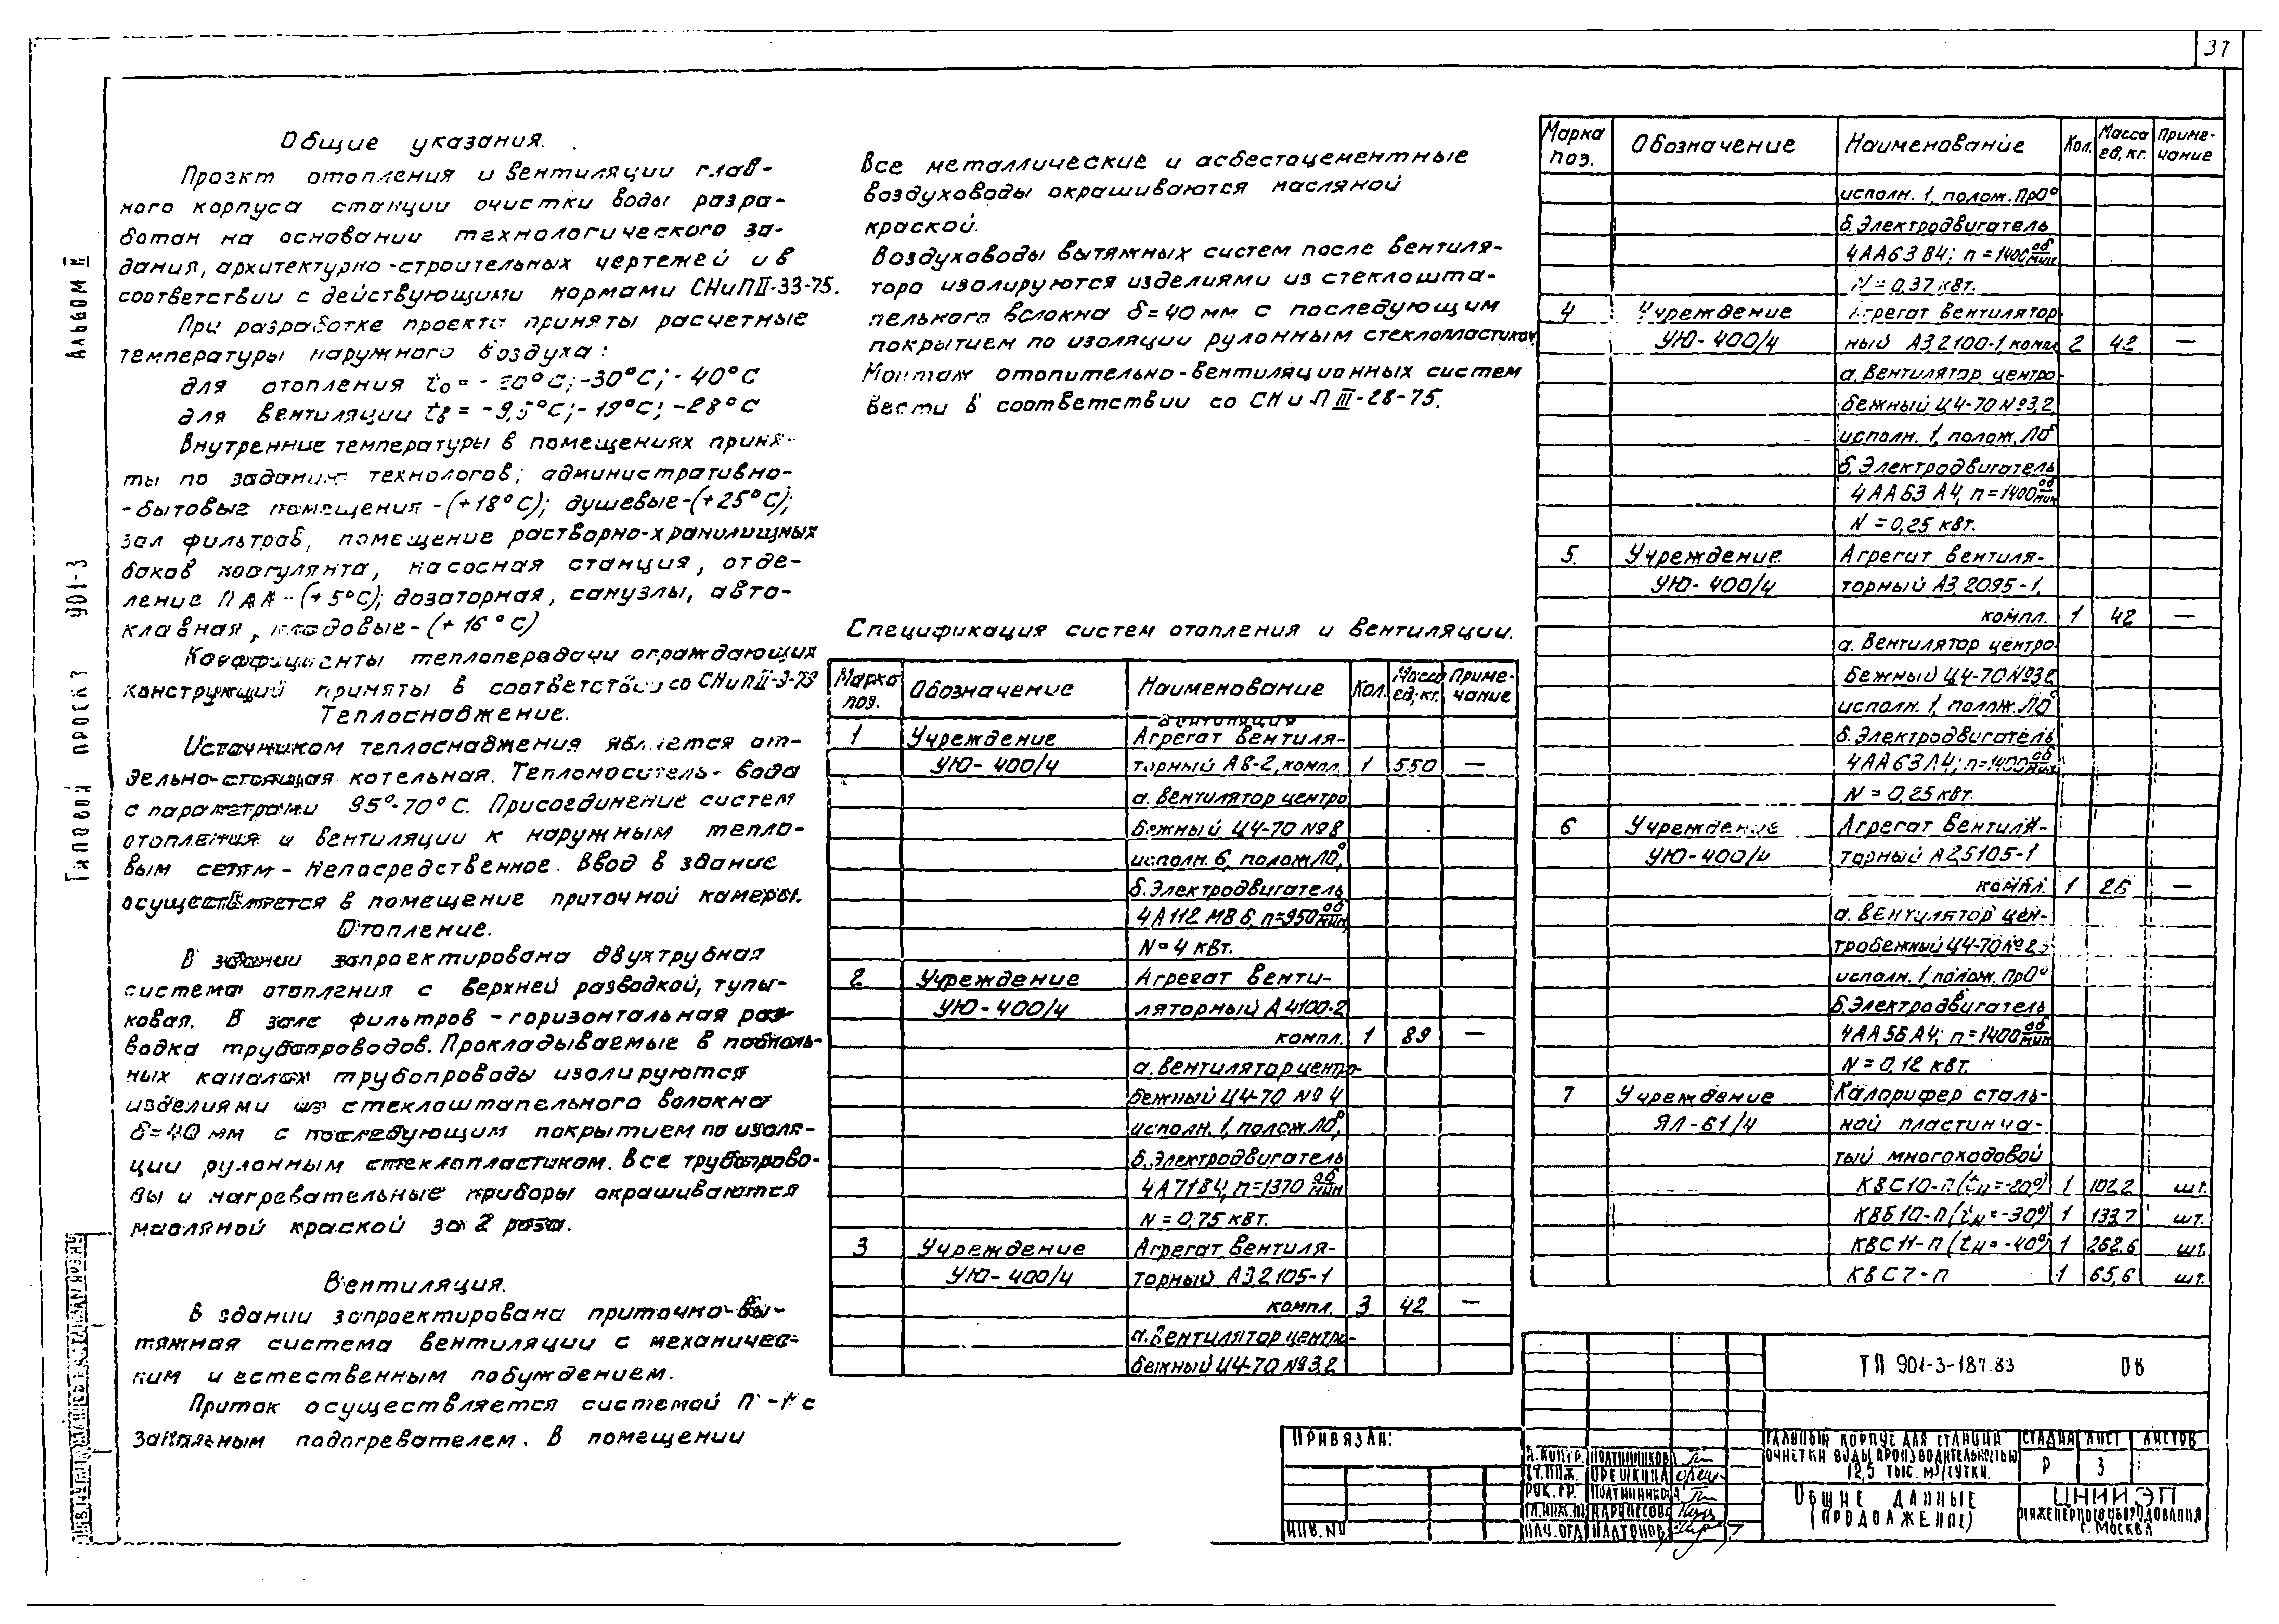 37
Общие указания.
Проект отопления и вентиляции глав-
ного корпуса станции очистки воды разра-
ботан на основании технологического за-
дания, архитектурно-строительных чертежей и в
соответствии с действующими нормами СНиП II-33-75.
При разработке проекта приняты расчетные
температуры наружного воздуха:
для отопления to = -20°С; -30°С; -40°С
для вентиляции tв = -9,5°С; -19°С; -28°С
Внутренние температуры в помещениях приня-
ты по заданию технологов; административно-
-бытовые помещения -(+18°С); душевые-(+25°С);
зал фильтров, помещение растворно-хранилищных
баков коагулянта, насосная станция, отде-
ление ПАА-(+5°С); дозаторная, санузлы, авто-
клавная, кладовые-(+16°С)
Коэффициенты теплопередачи ограждающих
конструкций приняты в соответствии со СНиП II-3-79
Теплоснабжение.
Источником теплоснабжения является от-
дельно-стоящая котельная. Теплоноситель- вода
с параметрами 95°-70°С. Присоединение систем
отопления и вентиляции к наружным тепло-
вым сетям - непосредственное. Ввод в здание
осуществляется в помещение приточной камеры.
Отопление.
В здании запроектирована двухтрубная
система отопления с верхней разводкой, тупи-
ковая. В зале фильтров - горизонтальная раз-
водка трубопроводов. Прокладываемые в подполь-
ных каналах трубопроводы изолируются
изделиями из стеклоштапельного волокна
δ=40 мм с последующим покрытием по изоля-
ции рулонным стеклопластиком. Все трубопрово-
ды и нагревательные приборы окрашиваются
масляной краской за 2 раза.
Вентиляция.
В здании запроектирована приточно-вы-
тяжная система вентиляции с механичес-
ким и естественным побуждением.
Приток осуществляется системой П-1 с
зональным подогревателем. В помещении
Все металлические и асбестоцементные
воздуховоды окрашиваются масляной
краской.
Воздуховоды вытяжных систем после вентиля-
тора изолируются изделиями из стеклошта-
пельного волокна δ=40 мм с последующим
покрытием по изоляции рулонным стеклопластиком
Монтаж отопительно-вентиляционных систем
вести в соответствии со СНиП III-28-75.
Спецификация систем отопления и вентиляции.
Марка поз. Обозначение Наименование Кол. Масса ед, кг. Приме-чание
Вентиляция
1 Учреждение Агрегат вентиля-
УЮ-400/4 торный А8-2, компл. 1 550 —
а. Вентилятор центро
бежный Ц4-70 №8
исполн. 6, полож. Л0°,
б. Электродвигатель
4А112 МВ6, n=950 об/мин,
N=4 кВт.
2 Учреждение Агрегат венти-
УЮ-400/4 ляторный А4100-2
компл. 1 89 —
а. Вентилятор центро-
бежный Ц4-70 №4
исполн. 1, полож. Л0°,
б. Электродвигатель
4А71В4, n=1370 об/мин
N=0,75 кВт.
3 Учреждение Агрегат вентиля-
УЮ-400/4 торный А3,2105-1
компл. 3 42 —
а. Вентилятор центро-
бежный Ц4-70 №3,2
Марка поз. Обозначение Наименование Кол. Масса ед, кг. Приме-чание
исполн. 1, полож. Пр0°
б. Электродвигатель
4АА63В4; n=1400 об/мин
N=0,37 кВт.
4 Учреждение Агрегат вентилятор-
УЮ-400/4 ный А3,2100-1, компл 2 42 —
а. Вентилятор центро
бежный Ц4-70 №3,2
исполн. 1, полож. Л0°
б. Электродвигатель
4АА63А4, n=1400 об/мин
N=0,25 кВт.
5. Учреждение. Агрегат вентиля-
УЮ-400/4 торный А3,2095-1,
компл. 1 42 —
а. Вентилятор центро
бежный Ц4-70 №3,2
исполн. 1, полож. Л0°
б. Электродвигатель
4АА63А4; n=1400 об/мин
N=0,25 кВт.
6 Учреждение Агрегат вентиля-
УЮ-400/4 торный А2,5105-1
компл. 1 26 —
а. Вентилятор цен-
тробежный Ц4-70 №2,5
исполн. 1, полож. Пр0°
б. Электродвигатель
4АА56А4; n=1400 об/мин
N=0,12 кВт.
7 Учреждение Калорифер сталь-
ЯЛ-61/4 ной пластинча-
тый многоходовой
КВС10-п (tн=-20°) 1 102,2 шт.
КВБ10-п (tн=-30°) 1 133,7 шт.
КВС11-п (tн=-40°) 1 262,6 шт.
КВС7-п 1 65,6 шт.
ТП 901-3-187.83 ОВ
Главный корпус для станции
очистки воды производительностью
12,5 тыс. м3/сутки.
Стадия Лист Листов
Р 3
Общие данные
(продолжение)
ЦНИИЭП
инженерного оборудования
г. Москва
Привязан:
Инв. №
Н. контр. Плотников
Ст. инж. Орешкина
Рук. гр. Плотников
Гл. инж. пр.
Нач. отд. Платонов
Альбом II
Типовой проект 901-3